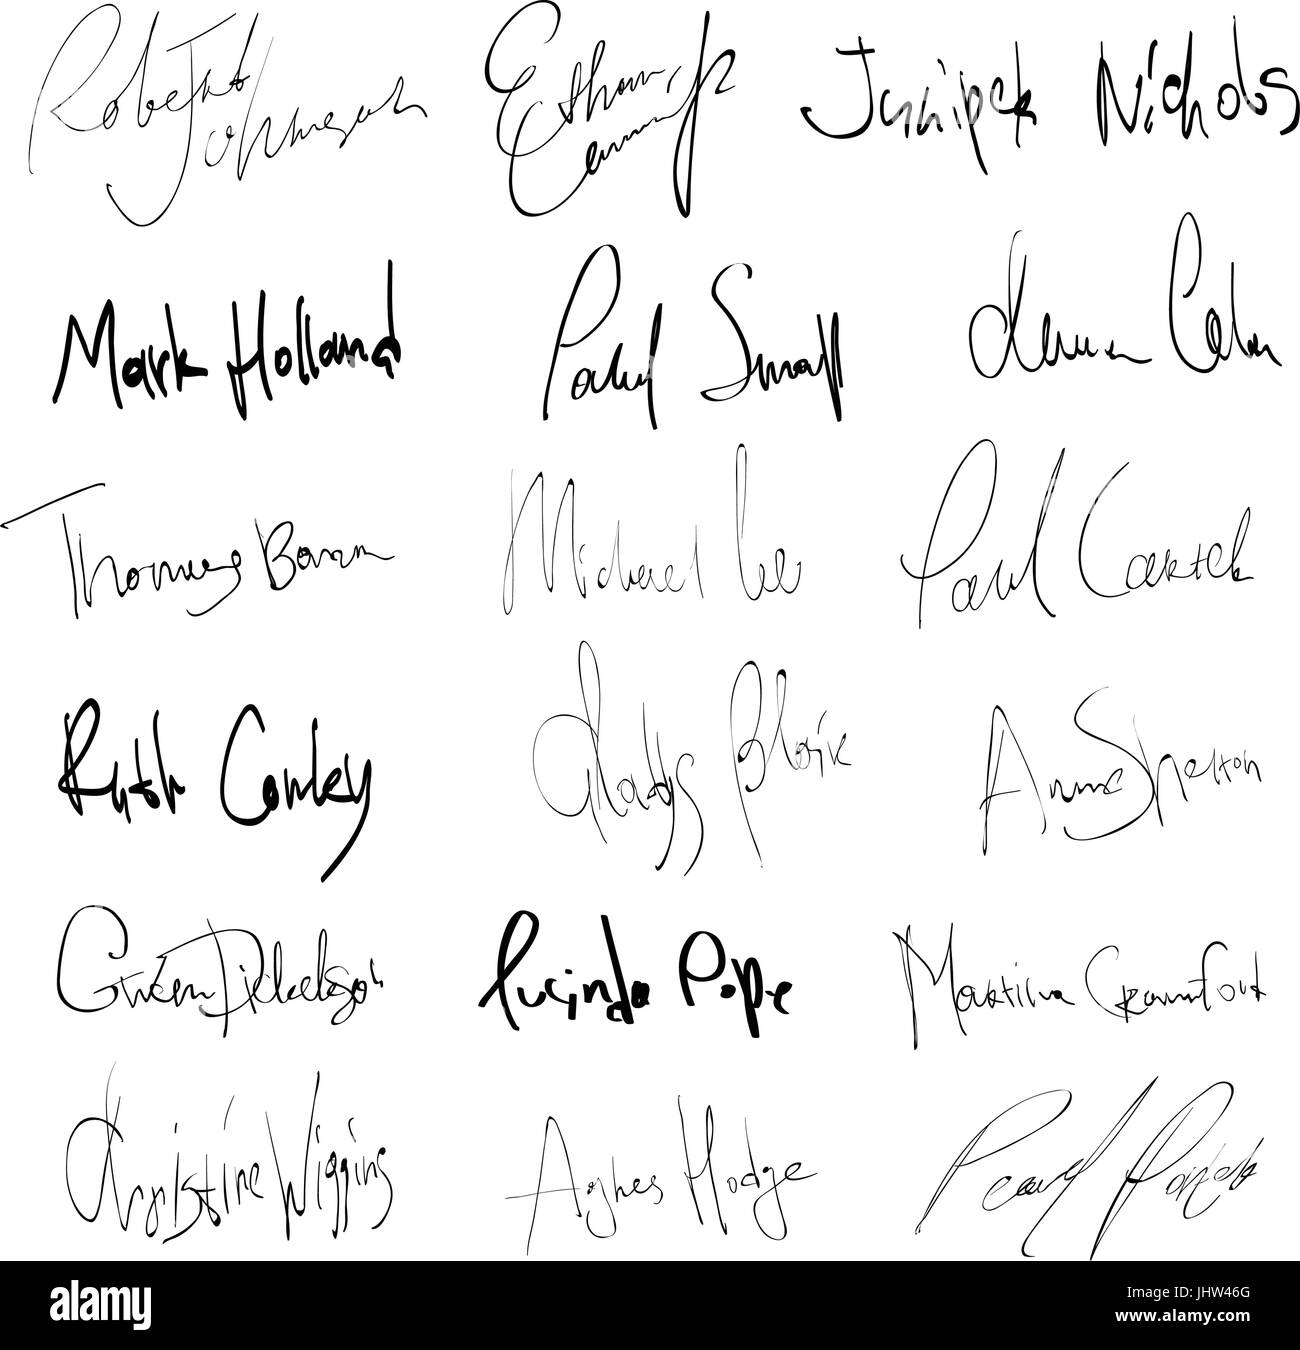 Robert Johnson Ethan Juniper Nichols
Mark Holland Paul Small
Thomas Baron Michael Lee Paul Carrick
Ruth Conley Gladys Blair Anne Shelton
Gwen Dickelson Lucinda Pope Martina Crawford
Christine Wiggins Agnes Hodge Pearl
alamy
Image ID: JHW46G
www.alamy.com